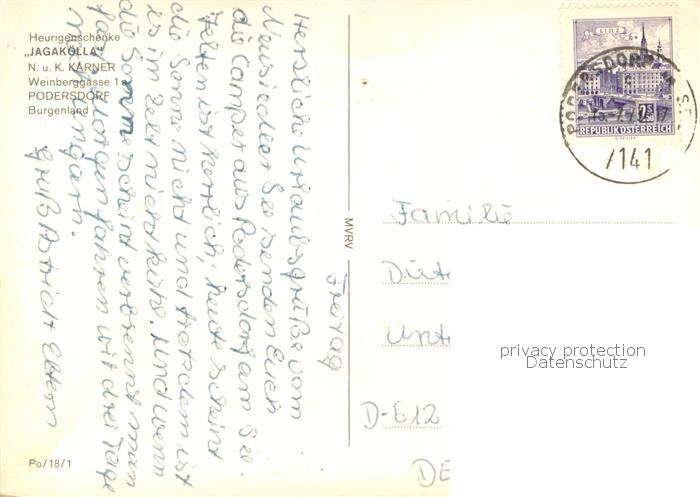 Heurigenschenke
„JAGAKOLLA"
N. u. K. KÄRNER
Weinberggasse 1a
PODERSDORF
Burgenland
Freitag
Herzliche Urlaubsgrüße vom
Neusiedler See senden Euch
die Camper aus Podersdorf am See.
Zelten ist herrlich, heute scheint
die Sonne nicht und trotzdem ist
es im Zelt nicht kühl. Und wenn
die Sonne scheint verbrennt man
fast. Morgen fahren wir drei Tage
nach Ungarn.
Gruß Astrid + Eltern
Po/18/1
MVRV
LINZ
2.50
S
REPUBLIK ÖSTERREICH
PODERSDORF
/141
Familie
Unt
D-612
DE
privacy protection
Datenschutz